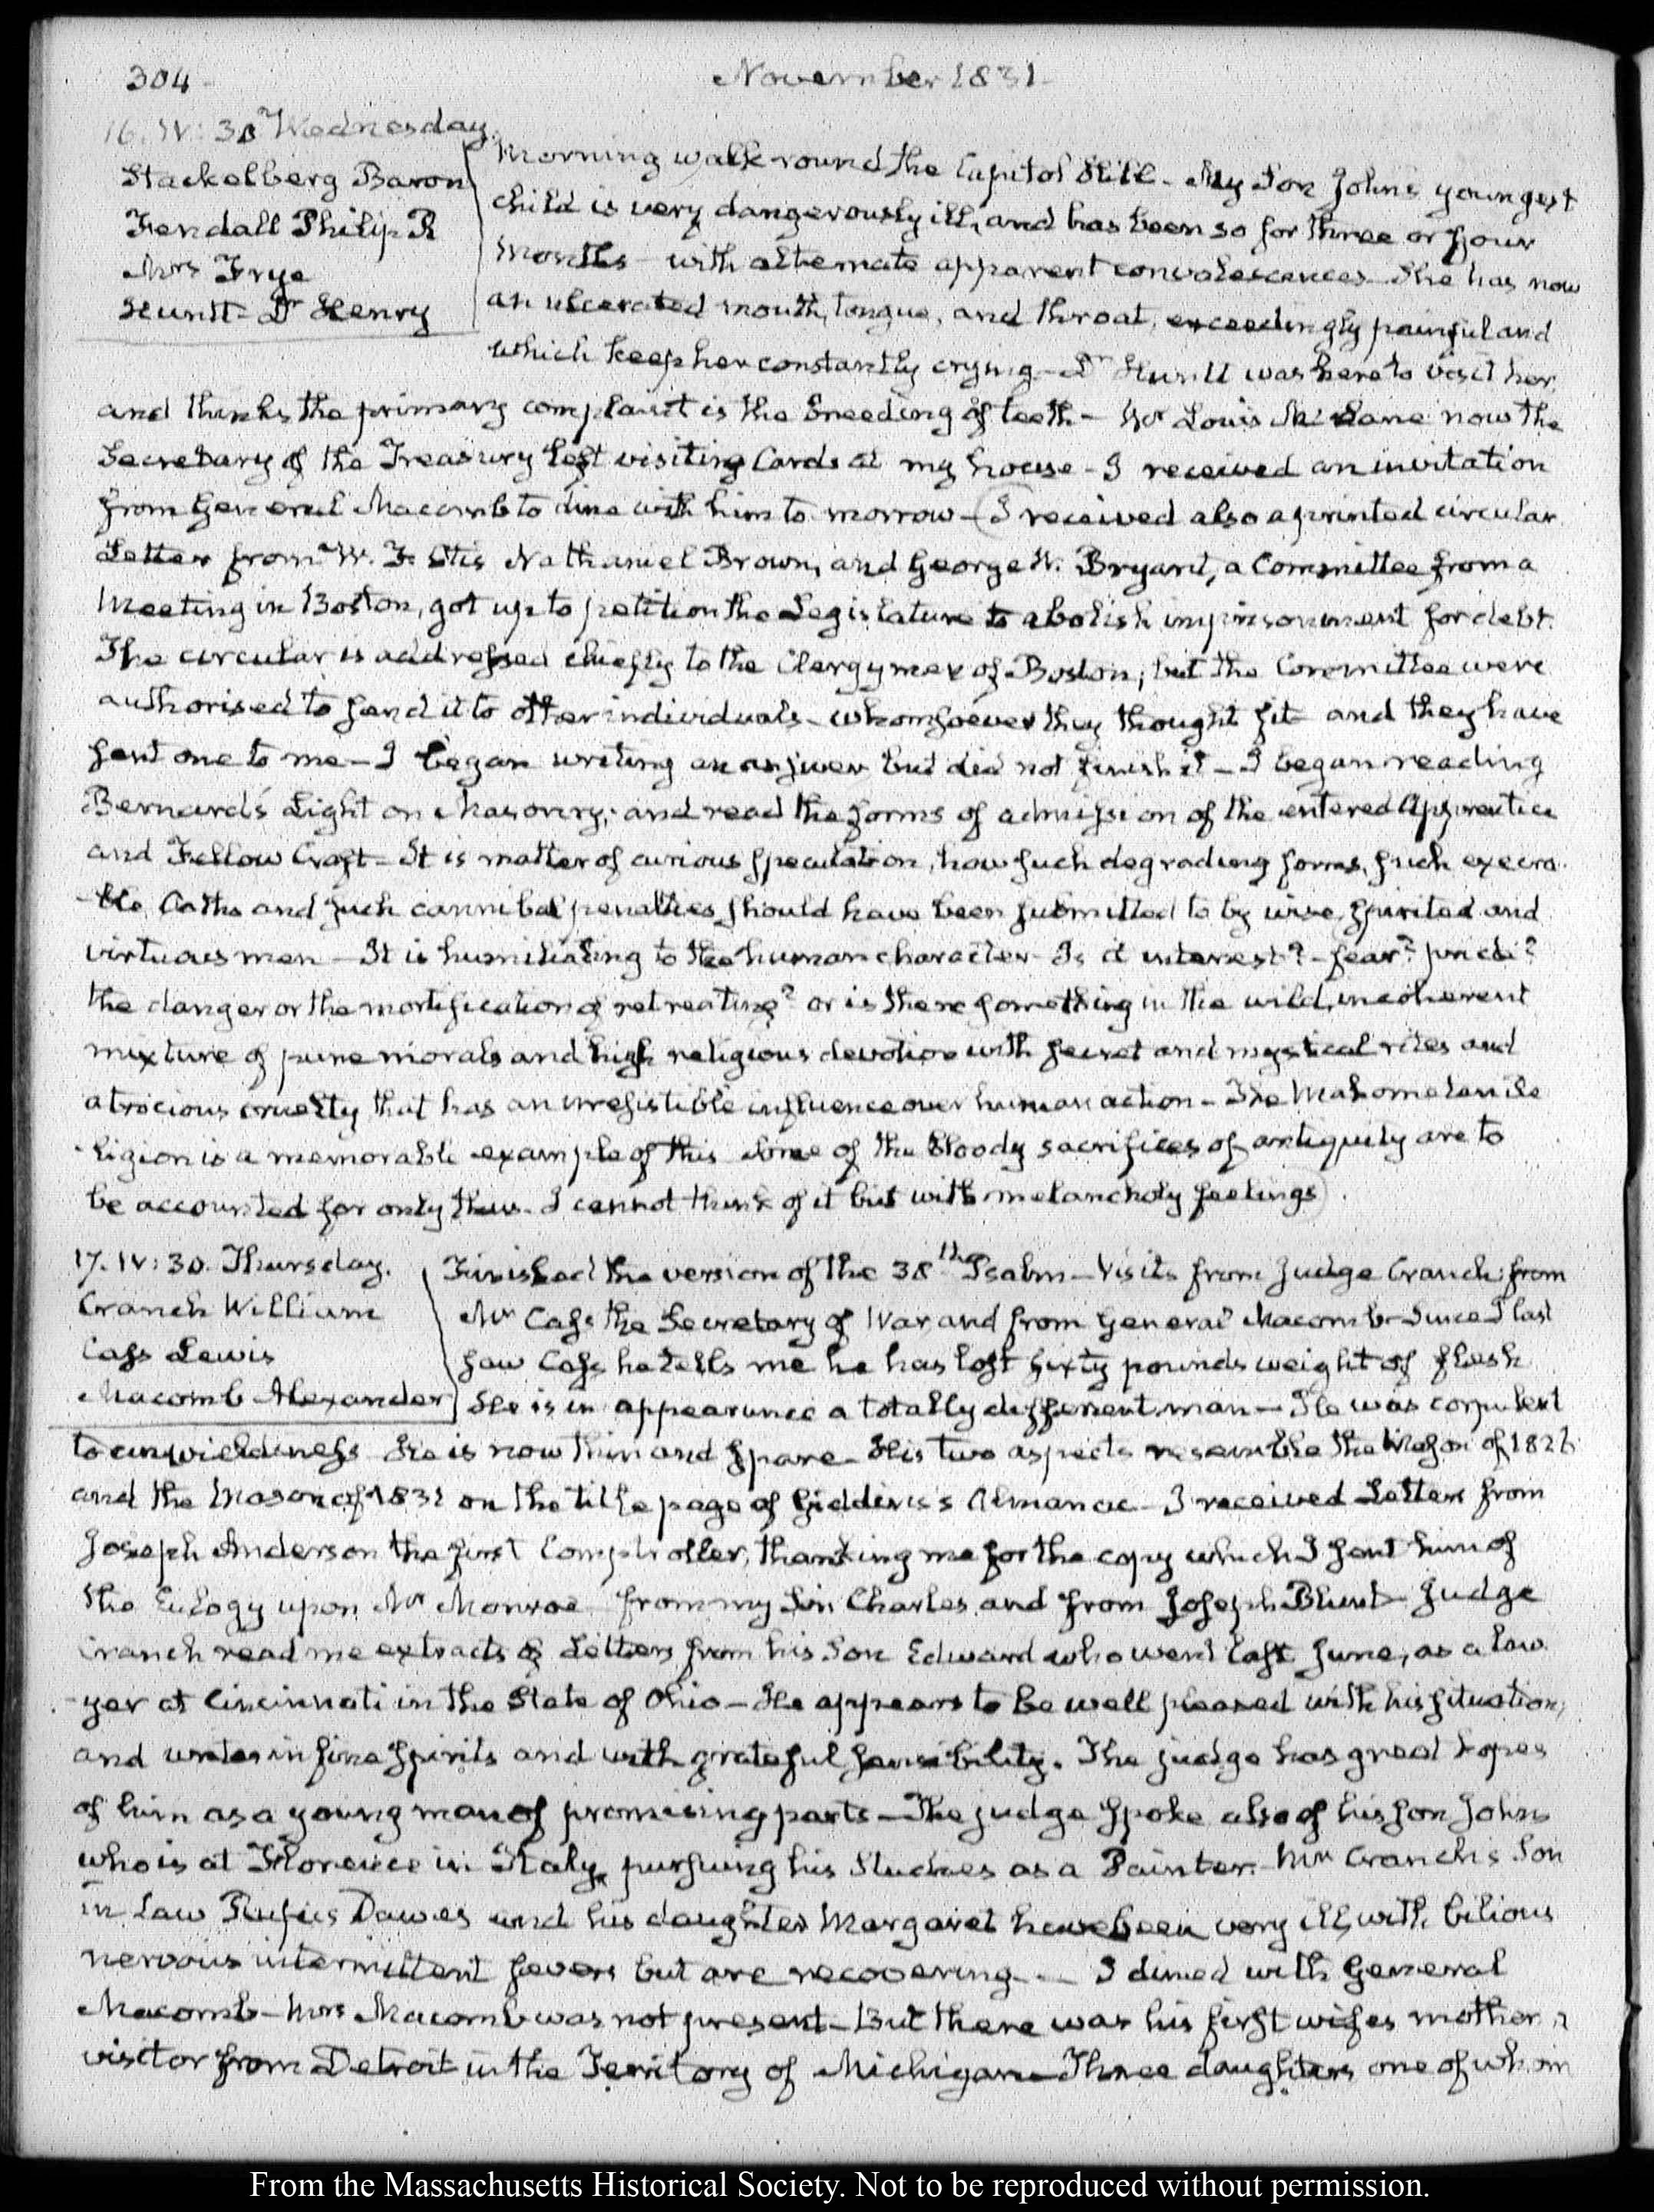 304
November 1831
16. IV: 30 Wednesday.
Stackelberg Baron
Fendall Philip R
Mrs Frye
Huntt Dr Henry
Morning walk round the Capitol Hill – My Son John's youngest
child is very dangerously ill, and has been so for three or four
months – with alternate apparent convalescences – She has now
an ulcerated mouth, tongue, and throat, exceedingly painful and
which keep her constantly crying – Dr Huntt was here to visit her
and thinks the primary complaint is the breeding of teeth – Mr Louis McLane now the
Secretary of the Treasury left visiting Cards at my house – I received an invitation
from General Macomb to dine with him to morrow – (I received also a printed circular
Letter from W. F. Otis Nathaniel Brown, and George W. Bryant, a Committee from a
Meeting in Boston, got up to petition the Legislature to abolish imprisonment for debt.
The circular is addressed chiefly to the Clergymen of Boston; but the Committee were
authorised to send it to other individuals – whomsoever they thought fit – and they have
sent one to me – I began writing an answer but did not finish it – I began reading
Bernard's Light on Masonry; and read the forms of admission of the entered Apprentice
and Fellow Craft – It is matter of curious speculation, how such degrading forms, such execra-
-ble Oaths and such cannibal penalties should have been submitted to by wise, spirited and
virtuous men – It is humiliating to the human character – Is it interest? – fear? pride?
the danger or the mortification of retreating? or is there something in the wild, incoherent
mixture of pure morals and high religious devotion with secret and mystical rites and
atrocious cruelty that has an irresistible influence over human action – The Mahometan Re
-ligion is a memorable example of this some of the bloody sacrifices of antiquity are to
be accounted for only thus – I cannot think of it but with melancholy feelings)
17. IV: 30. Thursday.
Cranch William
Cass Lewis
Macomb Alexander
Finished the version of the 38th Psalm – Visits from Judge Cranch from
Mr Cass the Secretary of War, and from General Macomb – Since I last
saw Cass he tells me he has lost sixty pounds weight of flesh
He is in appearance a totally different man – He was corpulent
to unwieldiness – He is now thin and spare – His two aspects resemble the Mason of 1826
and the Mason of 1831 on the title page of Giddins's Almanac – I received Letters from
Joseph Anderson the first Comptroller, thanking me for the copy which I sent him of
the Eulogy upon Mr Monroe from my Son Charles, and from Joseph Blunt – Judge
Cranch read me extracts of Letters from his Son Edward who went last June, as a law
-yer at Cincinnati in the State of Ohio – He appears to be well pleased with his situation,
and writes in fine spirits and with grateful sensibility. The judge has great hopes
of him as a young man of promising parts – The judge spoke also of his son John
who is at Florence in Italy, pursuing his Studies as a Painter. Mr Cranch's Son
in Law Rufus Dawes and his daughter Margaret have been very ill, with bilious
nervous intermittent fevers but are recovering. – I dined with General
Macomb – Mrs Macomb was not present – But there was his first wife's mother a
visitor from Detroit in the Territory of Michigan – Three daughters, one of whom
From the Massachusetts Historical Society. Not to be reproduced without permission.